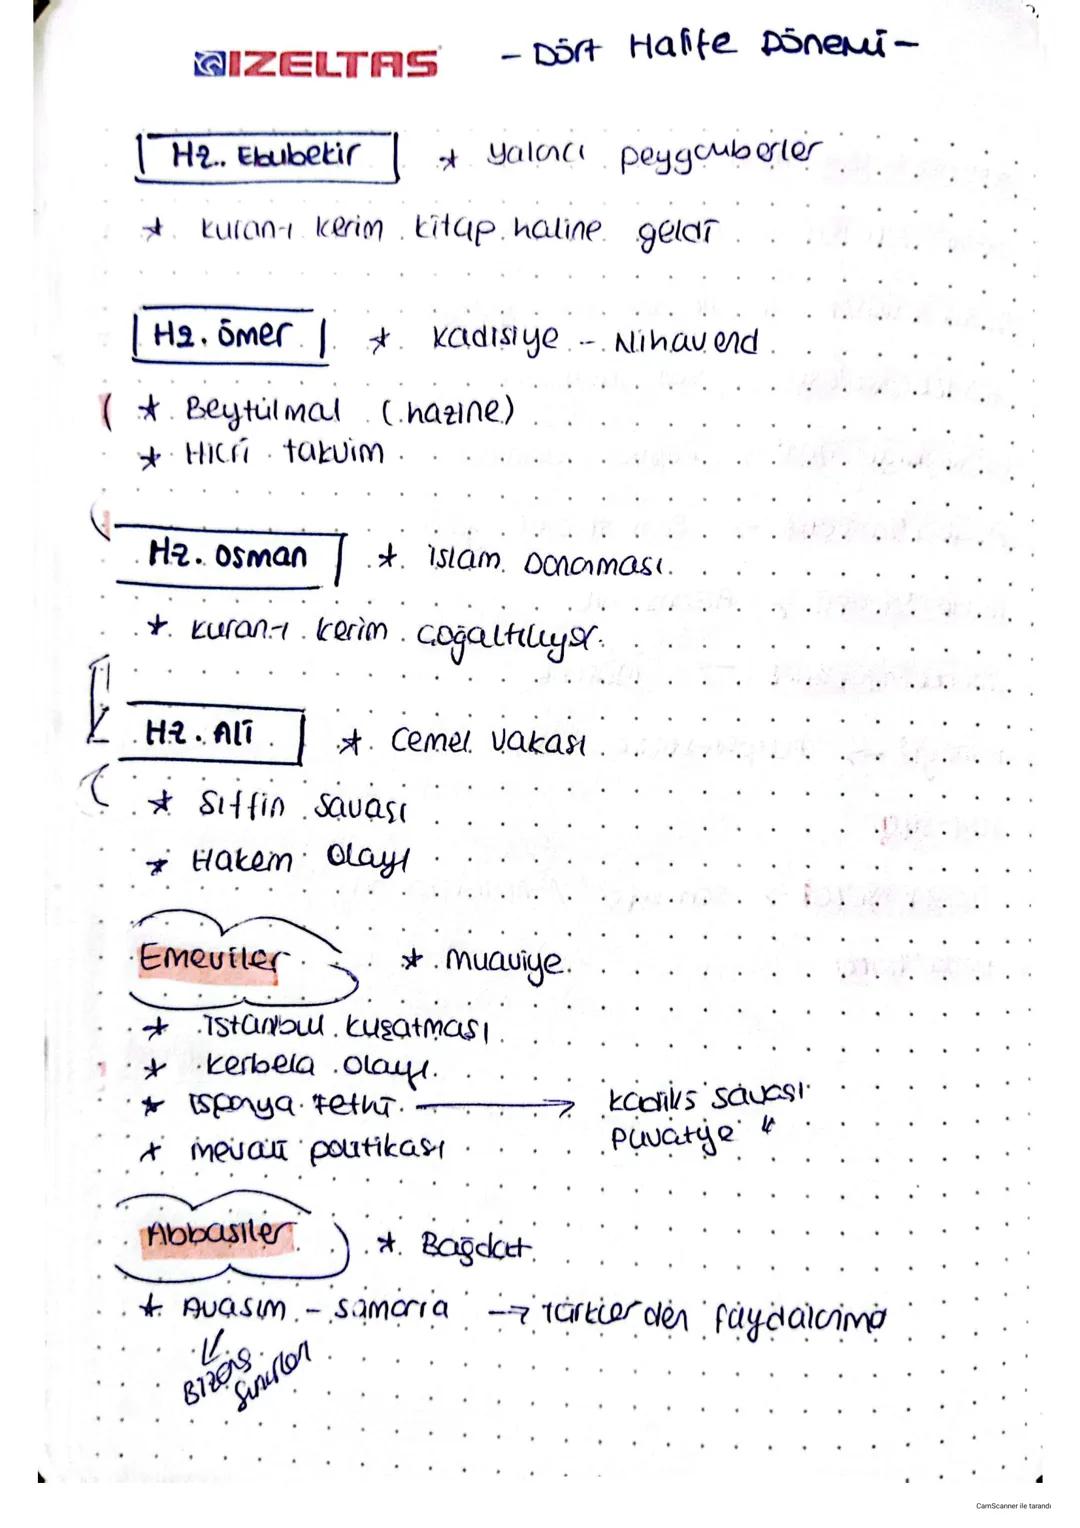 İZELTAŞ
- Dört Halife Dönemi -
Hz. Ebubekir * yalancı peygamberler
* kuran-ı kerim kitap haline geldi
Hz. Ömer * Kadisiye - Nihavend
* Beytülmal (hazine)
* Hicri takvim
Hz. Osman * islam Donanması.
* kuran-ı kerim çoğaltılıyor.
Hz. Ali * Cemel Vakası
* Sıffin savaşı
* Hakem Olayı
Emeviler * muaviye.
* istanbul kuşatması
* kerbela olayı.
* ispanya fethi. → kadiks savaşı
* mevali politikası puvatye "
Abbasiler * Bağdat.
* Avasım - samarra → Türklerden faydalanma
Bizans
Sınırları
CamScanner ile tarandı